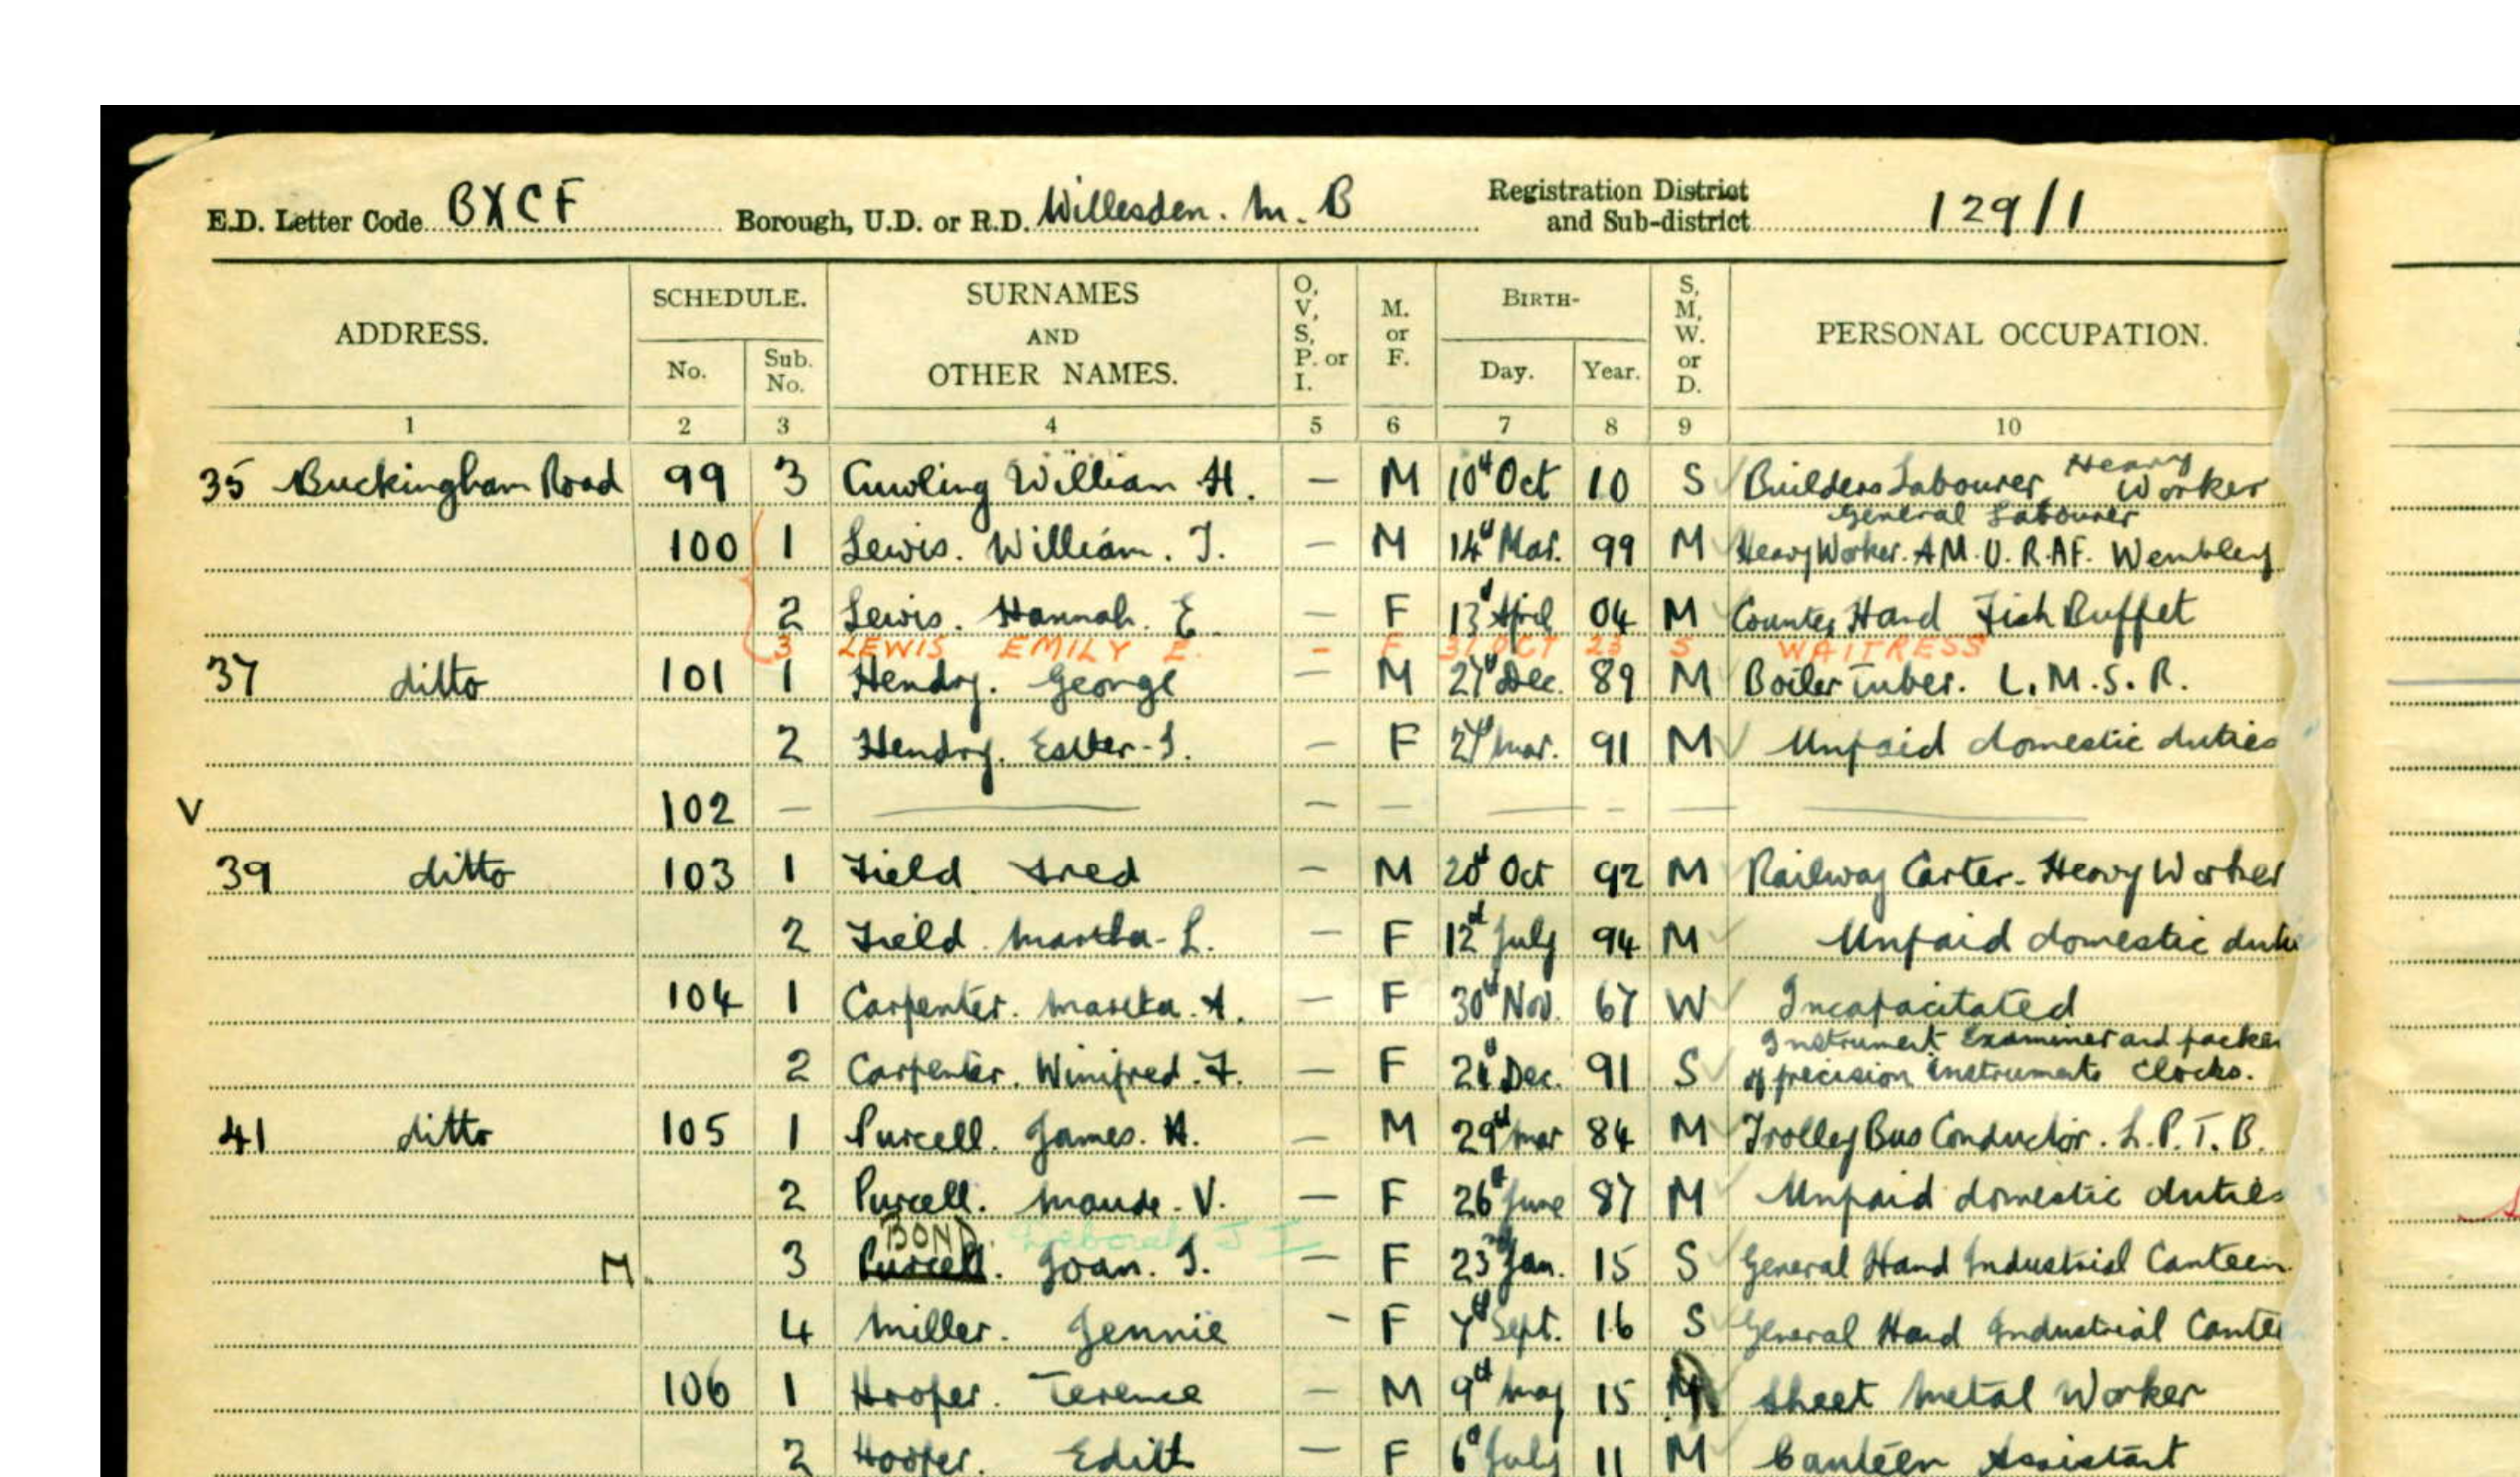 E.D. Letter Code BXCF Borough, U.D. or R.D. Willesden. M. B Registration District and Sub-district 129/1
ADDRESS. SCHEDULE. No. Sub. No. SURNAMES AND OTHER NAMES. O, V, S, P. or I. M. or F. BIRTH- Day. Year. S, M, W. or D. PERSONAL OCCUPATION.
1 2 3 4 5 6 7 8 9 10
35 Buckingham Road 99 3 William H. — M 10th Oct 10 S Builders Labourer Heavy Worker
General Labourer
100 1 Lewis. William. J. — M 14th Mar. 99 M Heavy Worker. A.M.U. R.A.F. Wembley
2 Lewis. Hannah. E — F 13th April 04 M Counter Hand Fish Buffet
3 LEWIS EMILY E. - F 31 OCT 23 S WAITRESS
37 ditto 101 1 Hendry. George — M 27th Dec. 89 M Boiler Tuber. L.M.S.R.
2 Hendry. Esther. J. — F 27th Mar. 91 M Unpaid domestic duties
V 102 — — — — — — — —
39 ditto 103 1 Field Fred — M 20th Oct 92 M Railway Carter. Heavy Worker
2 Field. Martha. L. — F 12th July 94 M Unpaid domestic duti
104 1 Carpenter. Martha. A. — F 30th Nov. 67 W Incapacitated
Instrument Examiner and packer
2 Carpenter. Winifred. F. — F Dec. 91 S of precision instruments Clocks.
41 ditto 105 1 Purcell. James. H. — M 29th Mar 84 M Trolley Bus Conductor. L.P.T.B.
2 Purcell. Maude. V. — F 26th June 87 M Unpaid domestic duties
BOND. Deborah J I
M. 3 Purcell. Joan. I. — F 23rd Jan. 15 S General Hand Industrial Canteen
4 Miller. Jennie - F 7th Sept. 16 S General Hand Industrial Cantee
106 1 Hooper. Terence — M 9th May 15 M Sheet Metal Worker
2 Hooper. Edith — F 6th July 11 M Canteen Assistant